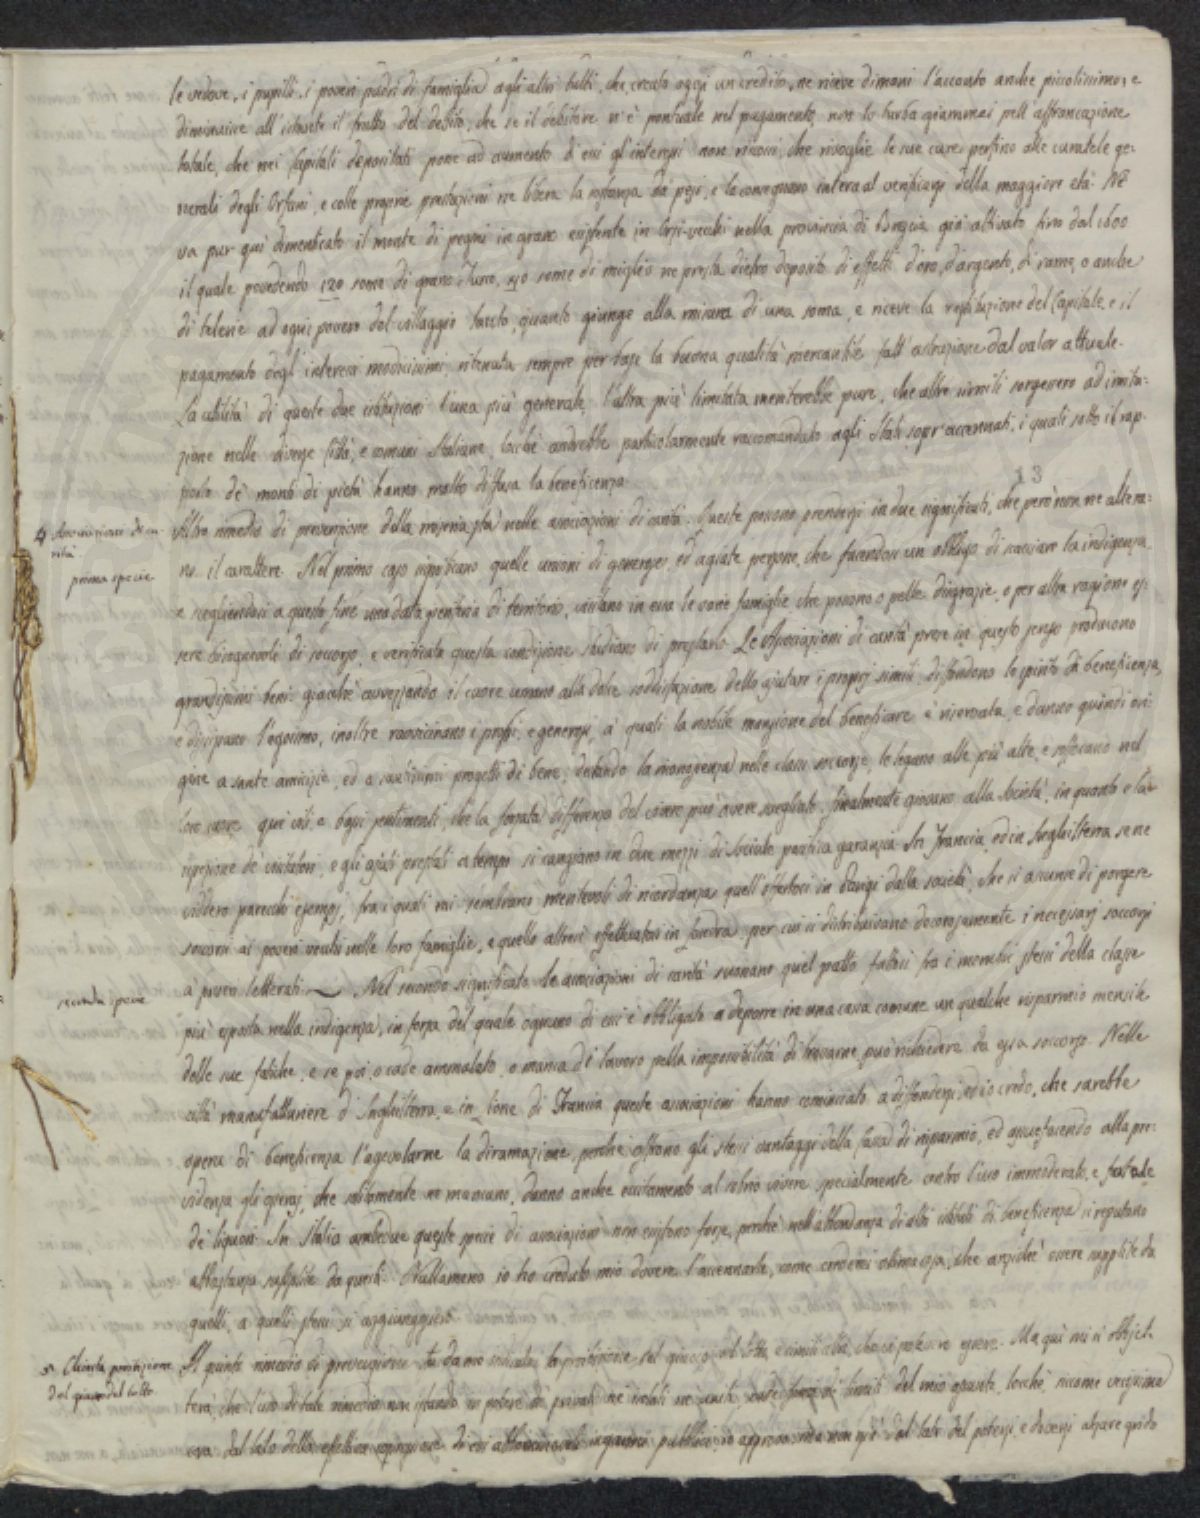 le vedove, i pupilli, i poveri padri di famiglia agli altri tutti, che, creato oggi un credito, ne riceve dimani l'acconto anche piccolissimo, e
diminuire all'istante il frutto del debito, che se il debitore n'è pontuale nel pagamento, non lo turba giammai nell'affrancazione
totale, che nei Capitali depositati pone ad aumento di essi gl'interessi non riscossi, che rivoglie le sue cure perfino alle curatele ge-
nerali degli Orfani, e colle proprie prestazioni ne libera la sostanza da' pesi, e la conseguano intera al verificarsi della maggiore età. Nè
va pur quì dimenticato il monte di pegni in grano esistente in Orzi-vecchi nella provincia di Brescia già attivato fino dal 1600
il quale possedendo 120 some di grano Turco, 50 some di miglio ne presta dietro deposito di effetti d'oro, d'argento, di rame, o anche
di telerie ad ogni povero del villaggio tanto, quanto giunge alla misura di una soma, e riceve la restituzione del Capitale, e il
pagamento degl'interessi modicissimi, ritenuta sempre per base la buona qualità mercantile fatt'astrazione dal valor attuale.
La utilità di queste due istituzioni l'una più generale, l'altra più limitata meriterebbe pure, che altre simili sorgessero ad imita-
zione nelle diverse Città, e comuni Italiane, locchè andrebbe particolarmente raccomandato agli Stati sopr'accennati, i quali sotto il rap-
porto de' monti di pietà hanno molto diffusa la beneficenza.
13
4 Associazioni di ca-
rità
prima specie
Altro rimedio di prevenzione della miseria sta nelle associazioni di carità. Queste possono prendersi in due significati, che però non ne altera-
no il carattere. Nel primo caso significano quelle unioni di generose, ed agiate persone, che facendosi un obbligo di scacciare la indigenza,
e scegliendosi a questo fine una data periferia di territorio, visitano in essa le varie famiglie che possono o pelle disgrazie, o per altra ragione es-
sere bisognevoli di soccorso, e verificata questa condizione studiano di prestarlo. Le Associazioni di carità prese in questo senso producono
grandissimi beni: giacchè avvezzando il cuore umano alla dolce soddisfazione dello ajutare i proprj simili, diffondono lo spirito di beneficenza,
e dissipano l'egoismo, inoltre ravvicinano i probi, e generosi, a' quali la nobile missione del beneficare è riservata, e danno quindi ori-
gine a sante amicizie, ed a santissimi progetti di bene; destando la riconoscenza nelle classi soccorse, le legano alle più alte, e soffocano nel
loro cuore que' vili, e bassi sentimenti, che la forzata differenza del censo può avere svegliato, finalmente giovano alla Società, in quanto e la
ispezione de' visitatori, e gli ajuti prestati a tempo si cangiano in due mezzi di sociale pacifica garanzia. In Francia, ed in Inghilterra se ne
videro parecchi esempj, fra i quali mi sembrano meritevoli di ricordanza quell'offertoci in Parigi dalla società, che si assunse di porgere
soccorsi ai poveri vecchi nelle loro famiglie, e quello altresì effettuatosi in Londra, per cui si distribuivano decorosamente i necessarj soccorsi
a' poveri letterati.
seconda specie
Nel secondo significato le associazioni di carità suonano quel patto fattosi fra i membri stessi della classe
più esposta nella indigenza, in forza del quale ognuno di essi è obbligato a deporre in una cassa comune un qualche risparmio mensile
delle sue fatiche, e se poi, o cade ammalato, o manca di lavoro pella impossibilità di trovarne, può richiedere da essa soccorso. Nelle
città manufatturiere d'Inghilterra, e in Lione di Francia queste associazioni hanno cominciato a diffondersi, ed io credo, che sarebbe
opera di beneficenza l'agevolarne la diramazione, perchè offrono gli stessi vantaggi della Cassa di risparmio, ed assuefacendo alla pre-
videnza gli operaj, che solitamente ne mancano, danno anche eccitamento al sobrio vivere specialmente contro l'uso immoderato, e fatale
de' liquori. In Italia ambedue queste specie di associazioni non esistono forse, perchè nell'abbondanza di altri istituti di beneficenza si reputano
abbastanza supplite da questi. Nullameno io ho creduto mio dovere l'accennarle, come credersi ottima cosa, che anzichè essere supplite da
quelli, a quelli stessi si aggiungessero.
5. Quinta proibizione
del giuoco del lotto
Il quinto rimedio di prevenzione sta da me indicato la proibizione del giuoco del lotto, e simili altri, che si potessero Ma quì mi si objet-
terà, che l'uso di tale rimedio non istando in potere de' privati nè isolati nè uniti, limiti del mio assunto, locchè, siccome verissima
cosa dal lato della effettiva di essi pubblici, io approvo, ma non già dal lato del potersi, e doversi alzare grido